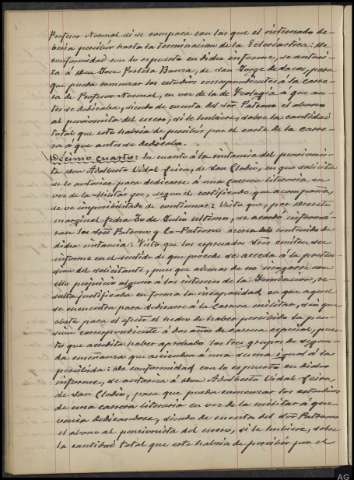 Profesor Normal si se compara con las que el interesado de-
bería percibir hasta la terminación de la Eclesiástica: De
conformidad con lo expuesto en dicho informe, se autori-
za á Don José Pestea Banza, de San Jorge de para
que pueda comenzar los estudios correspondientes á la carre-
ra de Profesor Normal, en vez de la de Teología á que an-
tes se dedicaba, siendo de cuenta del Sor Patrono el abono
al pensionista del exceso, si le hubiere, sobre la cantidad
total que este habría de percibir por el coste de la carre-
ra á que antes se dedicaba.
Décimo cuarto: En cuanto á la instancia del pensionis-
ta don Adalberto Vidal Feira, de San Clodio, en que solicita
se le autorice para dedicarse á una carrera literaria en
vez de la militar que, según el certificado que acompaña,
se ve imposibilitado de continuar: Visto que, por decreto
marginal fecha 30 de Julio último, se acordó informá-
sen los Sores Patrono y Co-Patrono acerca del contenido de
dicha instancia: Visto que los expresados Sores emiten su
informe en el sentido de que procede se acceda á la preten-
sión del solicitante, pues que además de no irrogarse con
ello perjuicio alguno á los intereses de la Fundación, re-
sulta justificada en forma la incapacidad en que aquel
se encuentra para dedicarse á la carrera militar, sin que
obste para el efecto el hecho de haber percibido la pen-
sión correspondiente á dos años de carrera especial, pues-
to que acredita haber aprobado los tres grupos de segun-
da enseñanza que ascienden á una suma igual á la
percibida: De conformidad con lo expuesto en dicho
informe, se autoriza á Don Adalberto Vidal Feira,
de San Clodio, para que pueda comenzar los estudios
de una carrera literaria en vez de la militar á que
venía dedicándose, siendo de cuenta del Sor Patrono
el abono al pensionista del exceso, si le hubiere, sobre
la cantidad total que este habría de percibir por el
AG